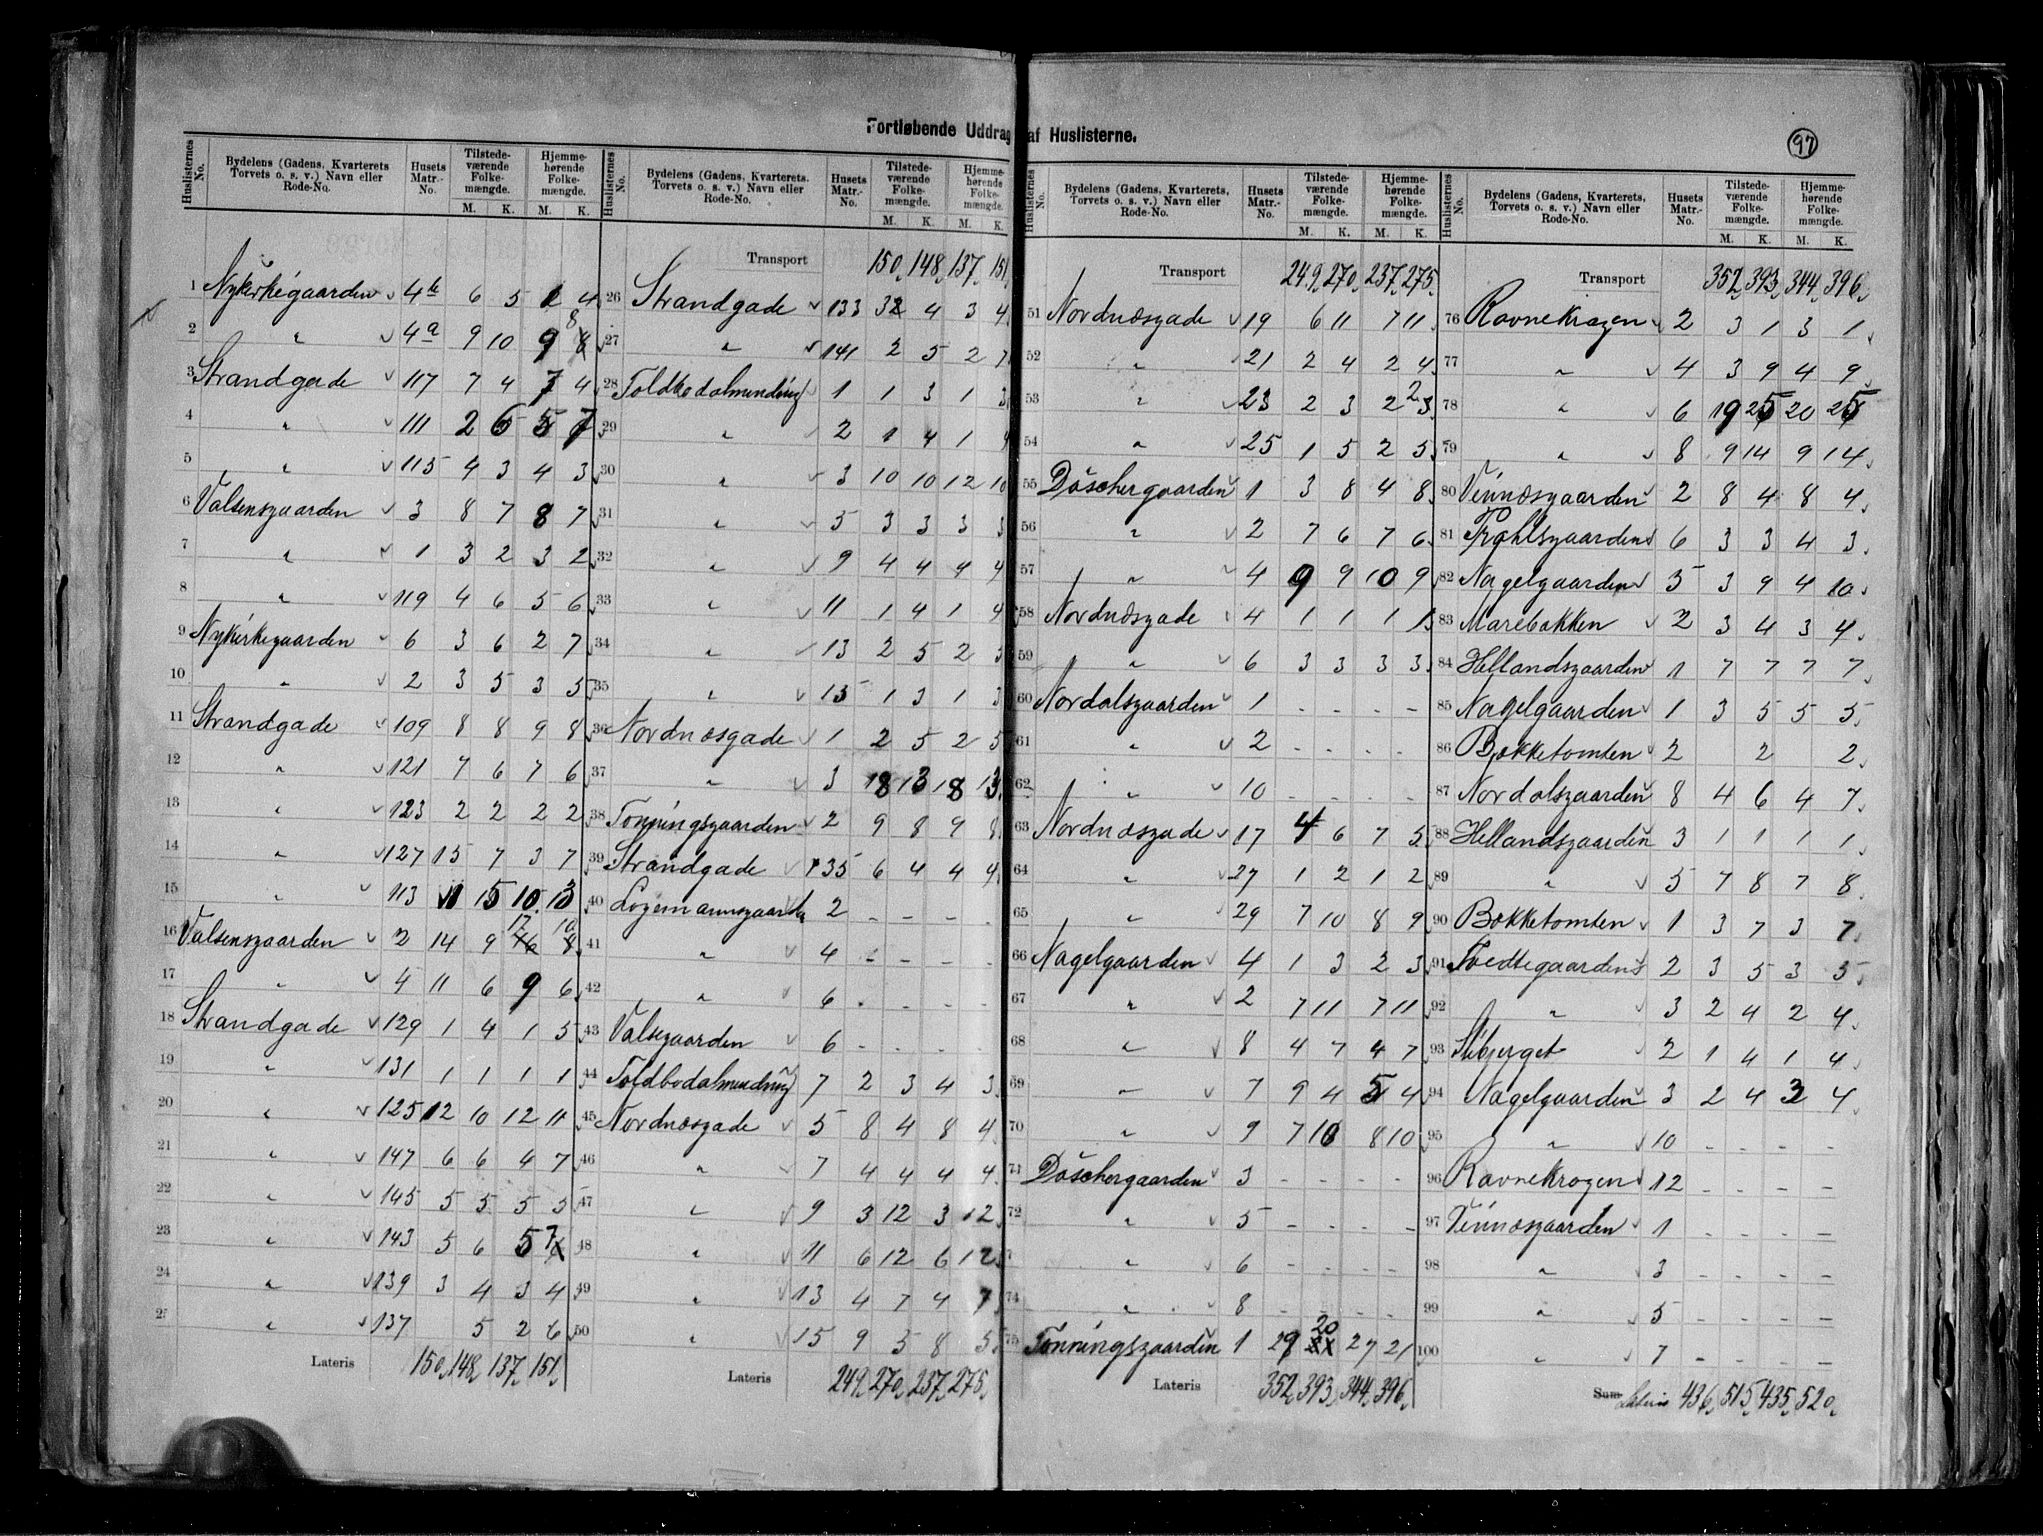 Fortløbende Uddrag af Huslisterne.
97
Huslisternes No. Bydelens (Gadens, Kvarterets Torvets o. s. v.) Navn eller Rode-No. Husets Matr.-No. Tilstedeværende Folkemængde. M. K. Hjemmehørende Folkemængde. M. K.
1 Nykirkegaarden 4b 6 5 4
2 " 4a 9 10 9 8
3 Strandgade 117 7 4 7 4
4 " 111 2 6 5 7
5 " 115 4 3 4 3
6 Valsensgaarden 3 8 7 8 7
7 " 1 3 2 3 2
8 " 119 4 6 5 6
9 Nykirkegaarden 6 3 6 2 7
10 " 2 3 5 3 5
11 Strandgade 109 8 8 9 8
12 " 121 7 6 7 6
13 " 123 2 2 2 2
14 " 127 15 7 3 7
15 " 113 11 15 10 13
16 Valsensgaarden 2 14 9 17 10
17 " 4 11 6 9 6
18 Strandgade 129 1 4 1 5
19 " 131 1 1 1 1
20 " 125 12 10 12 11
21 " 147 6 6 4 7
22 " 145 5 5 5 5
23 " 143 5 6 5 7
24 " 139 3 4 3 4
25 " 137 5 2 6
Lateris 150 148 137 151
Huslisternes No. Bydelens (Gadens, Kvarterets. Torvets o. s. v.) Navn eller Rode-No. Husets Matr.-No. Tilstedeværende Folkemængde. M. K. Hjemmehørende Folkemængde. M. K.
Transport 150 148 137 151
26 Strandgade 133 32 4 3 4
27 " 141 2 5 2 7
28 Toldbodalmending 1 1 3 1 3
29 " 2 1 4 1 4
30 " 3 10 10 12 10
31 " 5 3 3 3 3
32 " 9 4 4 4 4
33 " 11 1 4 1 4
34 " 13 2 5 2 3
35 " 15 1 3 1 3
36 Nordnæsgade 1 2 5 2 5
37 " 3 18 13 18 13
38 Tonningsgaarden 2 9 8 9 8
39 Strandgade 135 6 4 4 4
40 Logemannsgaarden 2 - - - -
41 " 4 - - - -
42 " 6 - - - -
43 Valsegaarden 6 - - - -
44 Toldbodalmending 7 2 3 4 3
45 Nordnæsgade 5 8 4 8 4
46 " 7 4 4 4 4
47 " 9 3 12 3 12
48 " 11 6 12 6 12
49 " 13 4 7 4 7
50 " 15 9 5 8 5
Lateris 249 270 237 275
Huslisternes No. Bydelens (Gadens, Kvarterets, Torvets o. s. v.) Navn eller Rode-No. Husets Matr.-No. Tilstedeværende Folkemængde. M. K. Hjemmehørende Folkemængde. M. K.
Transport 249 270 237 275
51 Nordnæsgade 19 6 11 7 11
52 " 21 2 4 2 4
53 " 23 2 3 2 3
54 " 25 1 5 2 5
55 Döschergaarden 1 3 8 4 8
56 " 2 7 6 7 6
57 " 4 9 9 10 9
58 Nordnæsgade 4 1 1 1 1
59 " 6 3 3 3 3
60 Nordalsgaarden 1 - - - -
61 " 2 - - - -
62 " 10 - - - -
63 Nordnæsgade 17 4 6 7 5
64 " 27 1 2 1 2
65 " 29 7 10 8 9
66 Nagelgaarden 4 1 3 2 3
67 " 2 7 11 7 11
68 " 8 4 7 4 7
69 " 7 9 4 5 4
70 " 9 7 10 8 10
71 Döschergaarden 3 - - - -
72 " 5 - - - -
7 " 6 - - - -
74 " 8 - - - -
75 Tönningsgaarden 1 29 20 27 21
Lateris 352 393 344 396
Huslisternes No. Bydelens (Gadens, Kvarterets, Torvets o. s. v.) Navn eller Rode-No. Husets Matr.-No. Tilstedeværende Folkemængde. M. K. Hjemmehørende Folkemængde. M. K.
Transport 352 393 344 396
76 Ravnekrogen 2 3 1 3 1
77 " 4 3 9 4 9
78 " 6 19 25 20 25
79 " 8 9 14 9 14
80 Vinnæsgaarden 2 8 4 8 4
81 Prahlsgaarden 6 3 3 4 3
82 Nagelgaarden 5 3 9 4 10
83 Marebakken 2 3 4 3 4
84 Hellandsgaarden 1 7 7 7 7
85 Nagelgaarden 1 3 5 5 5
86 Bakketomten 2 2 2
87 Nordalsgaarden 8 4 6 4 7
88 Hellandsgaarden 3 1 1 1 1
89 " 5 7 8 7 8
90 Bakketomten 1 3 7 3 7
91 Tvedtegaarden 2 3 5 3 5
92 " 3 2 4 2 4
93 Skibjerget 2 1 4 1 4
94 Nagelgaarden 3 2 4 3 4
95 " 10 - - - -
96 Ravnekrogen 12 - - - -
97 Vinnæsgaarden 1 - - - -
98 " 3 - - - -
99 " 5 - - - -
100 " 7 - - - -
Sum Lateris 436 515 435 520